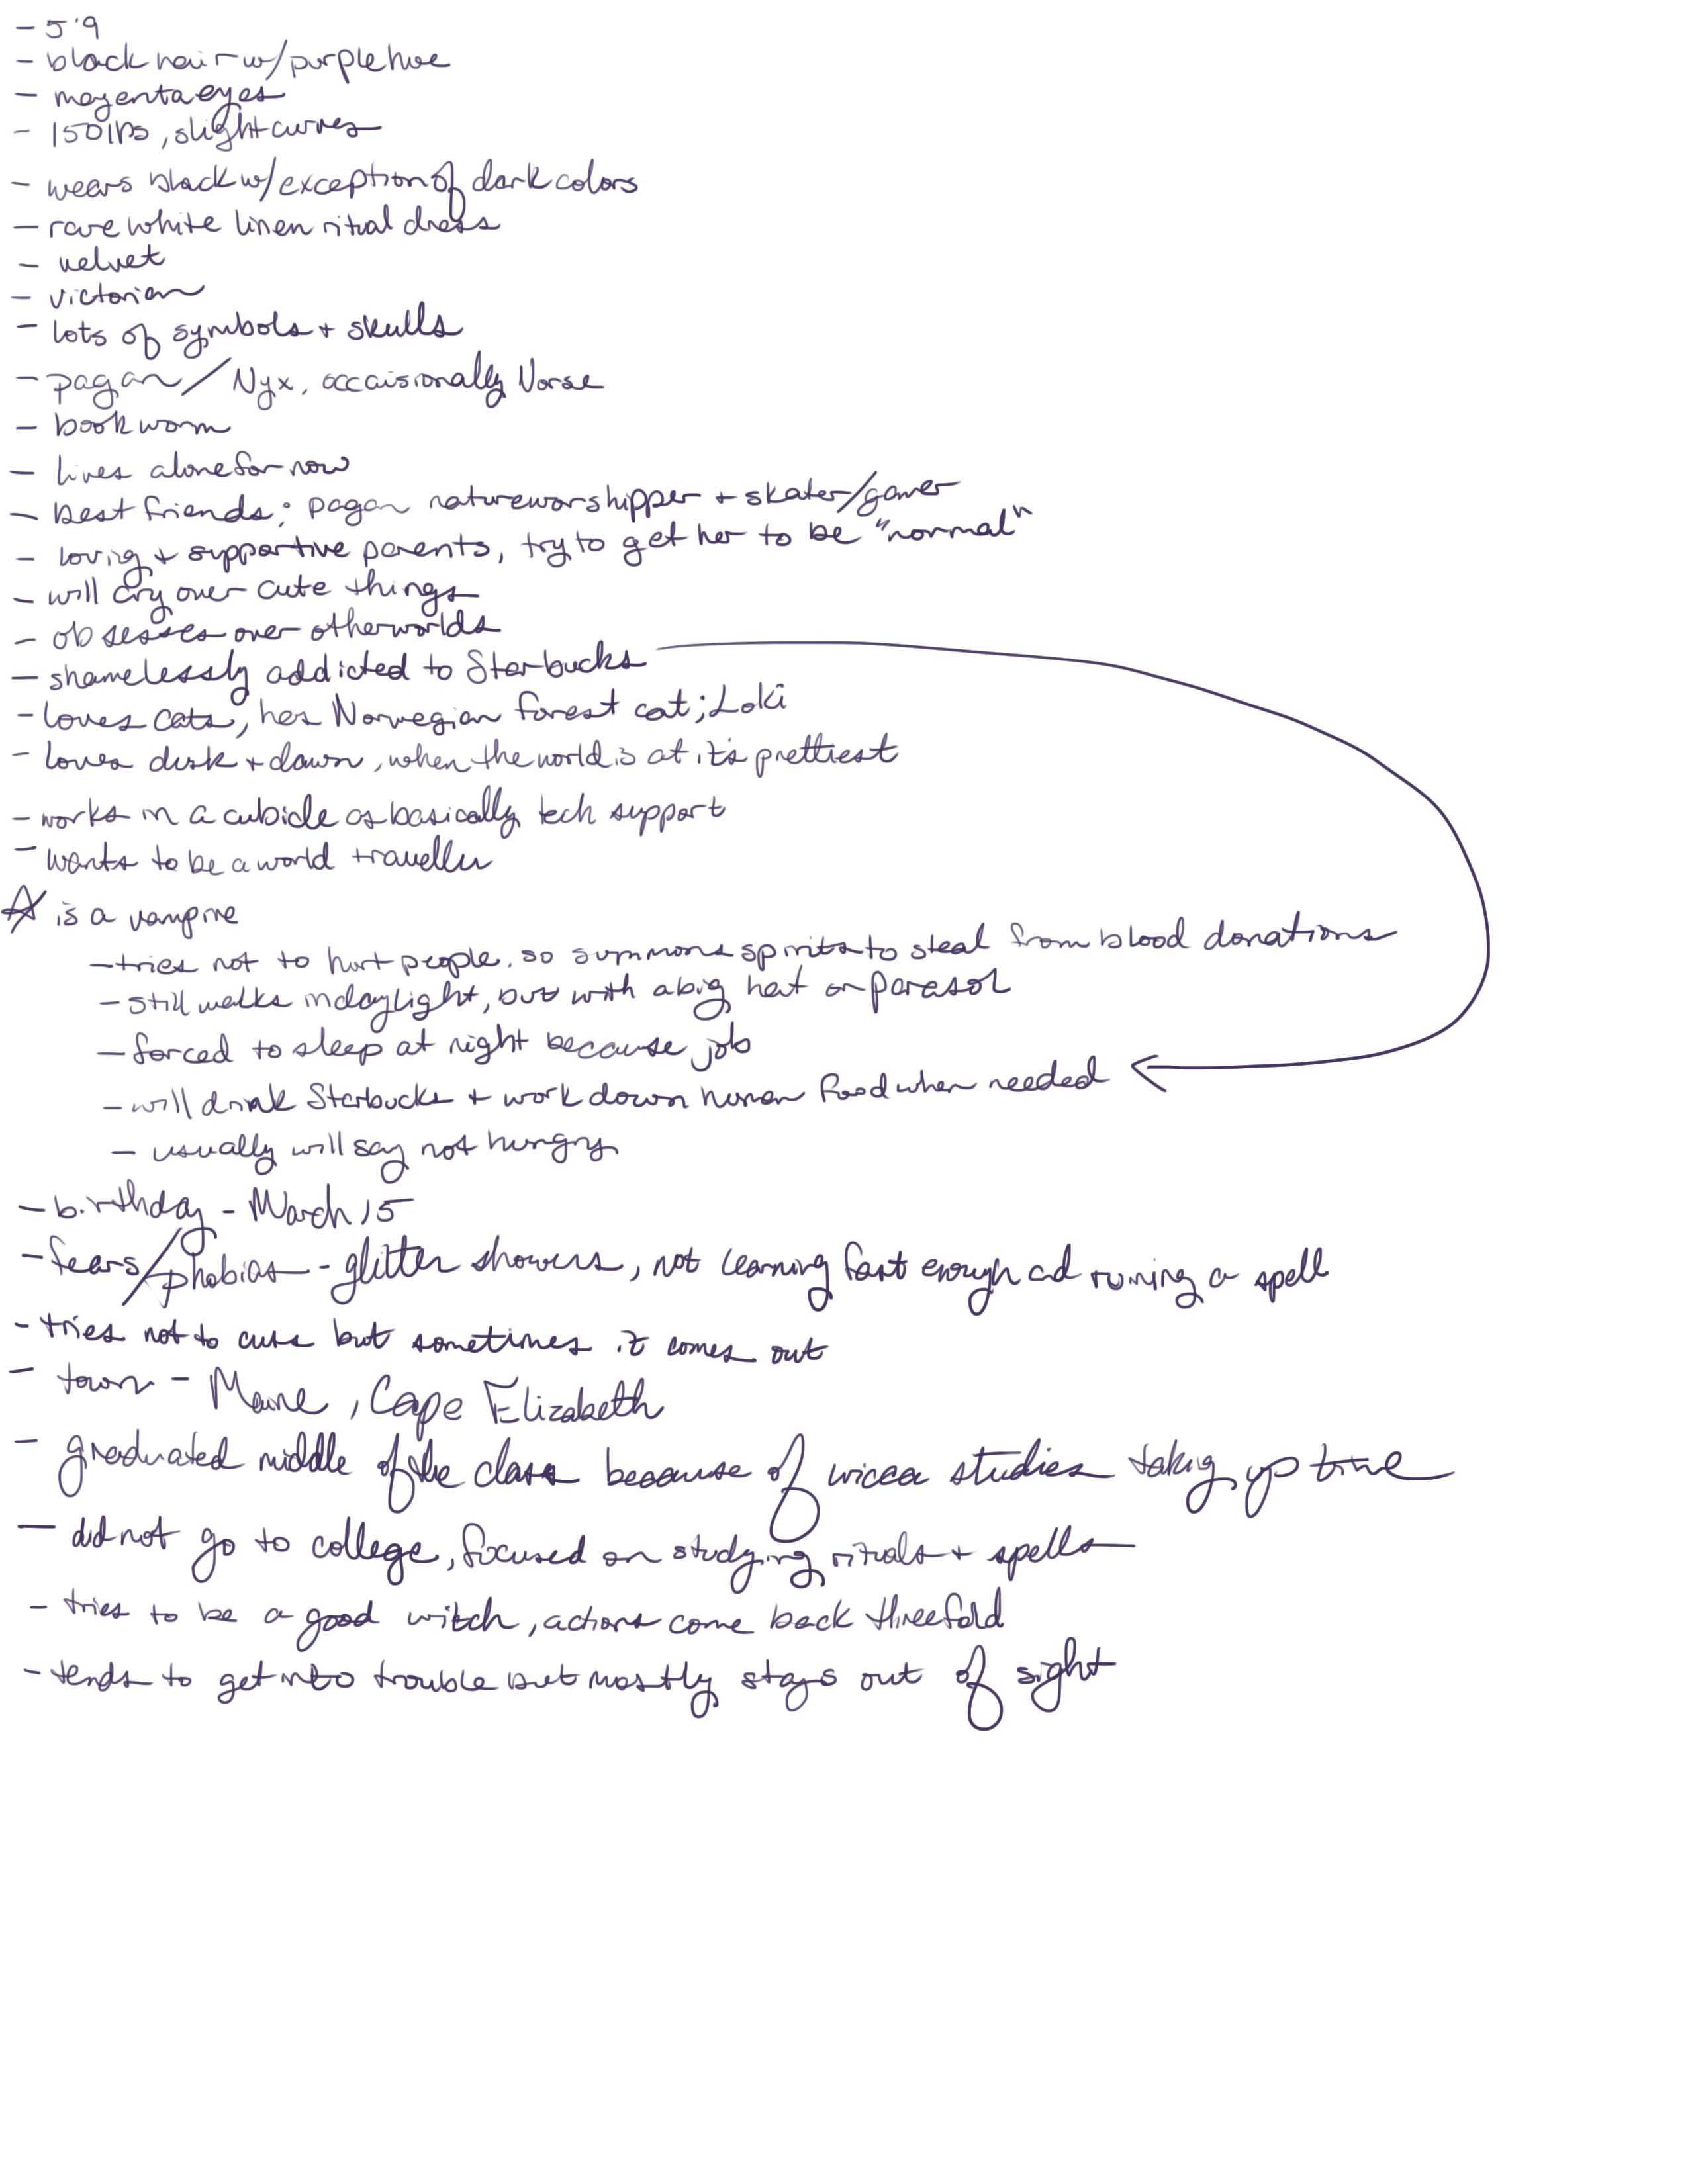 - 5'9
- black hair w/ purple hue
- magenta eyes
- 150 lbs, slight curves
- wears black w/ exception of dark colors
- rare white linen ritual dress
- velvet
- victorian
- lots of symbols + skulls
- pagan / Nyx, occaisionally Norse
- bookworm
- lives alone for now
- best friends; pagan nature worshipper + skater/gamer
- loving + supportive parents, try to get her to be "normal"
- will cry over cute things
- obsesses over otherworlds
- shamelessly addicted to Starbucks
- loves cats, has Norwegian forest cat; Loki
- loves dusk + dawn, when the world is at it's prettiest
- works in a cubicle as basically tech support
- wants to be a world traveller
☆ is a vampire
- tries not to hurt people, so summons spirits to steal from blood donations
- still walks in daylight, but with a big hat or parasol
- forced to sleep at night because job
- will drink Starbucks + work down human food when needed
- usually will say not hungry
- birthday - March 15
- fears/phobias - glitter showers, not learning fast enough and ruining a spell
- tries not to cuss but sometimes it comes out
- town - Maine, Cape Elizabeth
- graduated middle of the class because of wicca studies taking up time
- did not go to college, focused on studying rituals + spells
- tries to be a good witch, actions come back threefold
- tends to get into trouble but mostly stays out of sight